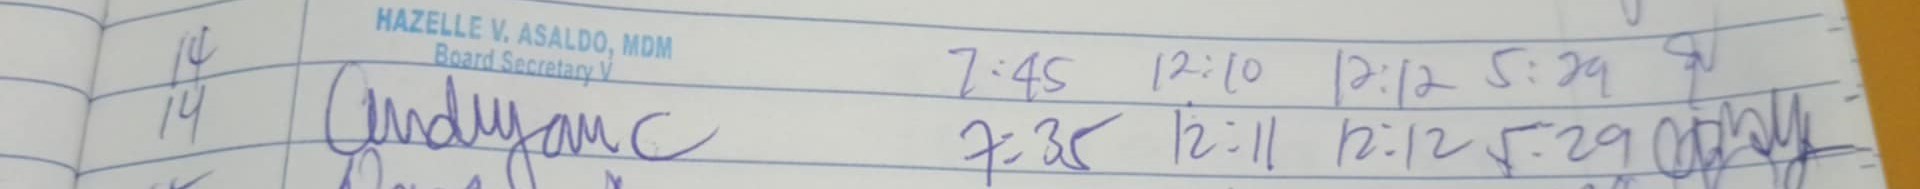 14 HAZELLE V. ASALDO, MDM 7:45 12:10 12:12 5:29
Board Secretary V
14 7:35 12:11 12:12 5:29